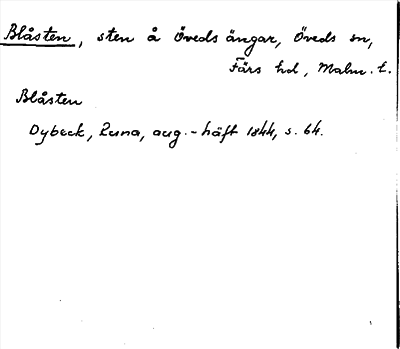 Blåsten, sten å Öveds ängar, Öveds sn,
Färs hd, Malm. l.
Blåsten
Dybeck, Runa, aug.-häft 1844, s. 64.